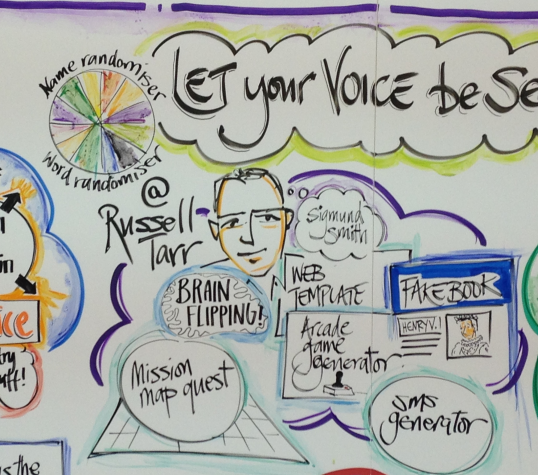 Name randomiser
Word randomiser
LET your VOICE be Se
@
Russell
Tarr
Sigmund
Smith
BRAIN
FLIPPING!
WEB
TEMPLATE
FAKEBOOK
HENRY V.1
Arcade
game
generator
Mission
map quest
SMS
generator
in
ice
try
uff!
is the